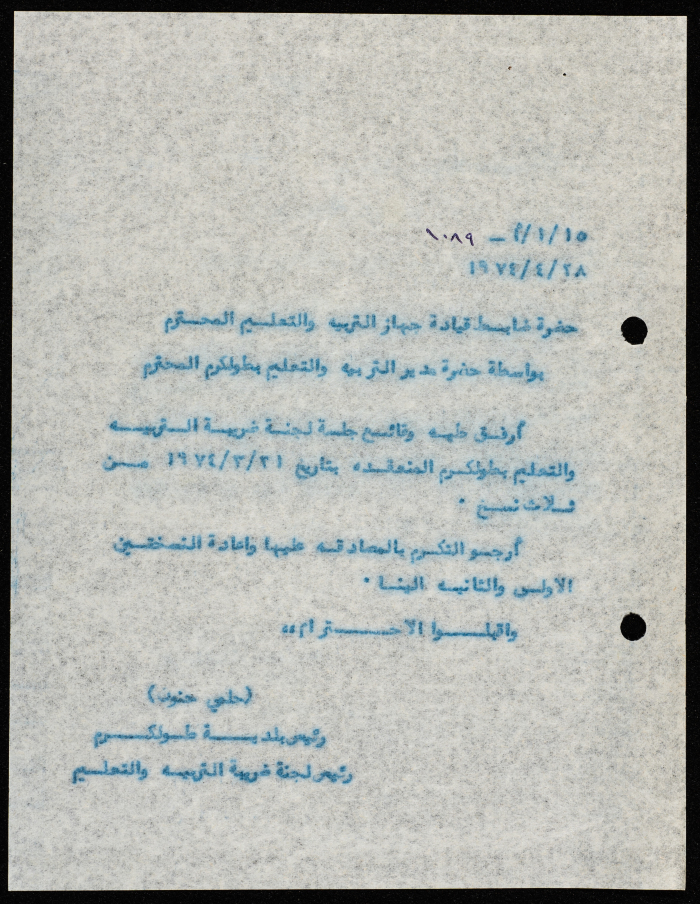 م/١/١٥ — ١٠٨٩
١٩٧٤/٤/٢٨
حضرة ضابط قيادة جهاز التربيه والتعليم المحترم
بواسطة حضرة مدير التربيه والتعليم بطولكرم المحترم
أرفق طيه وقائع جلسة لجنة ضريبة التربيه
والتعليم بطولكرم المنعقده بتاريخ ١٩٧٤/٣/٣١ من
ثلاث نسخ .
أرجو التكرم بالمصادقه عليها واعادة النسختين
الاولى والثانيه الينا .
واقبلوا الاحترام،،
(حلمي حنون)
رئيس بلدية طولكرم
رئيس لجنة ضريبة التربيه والتعليم